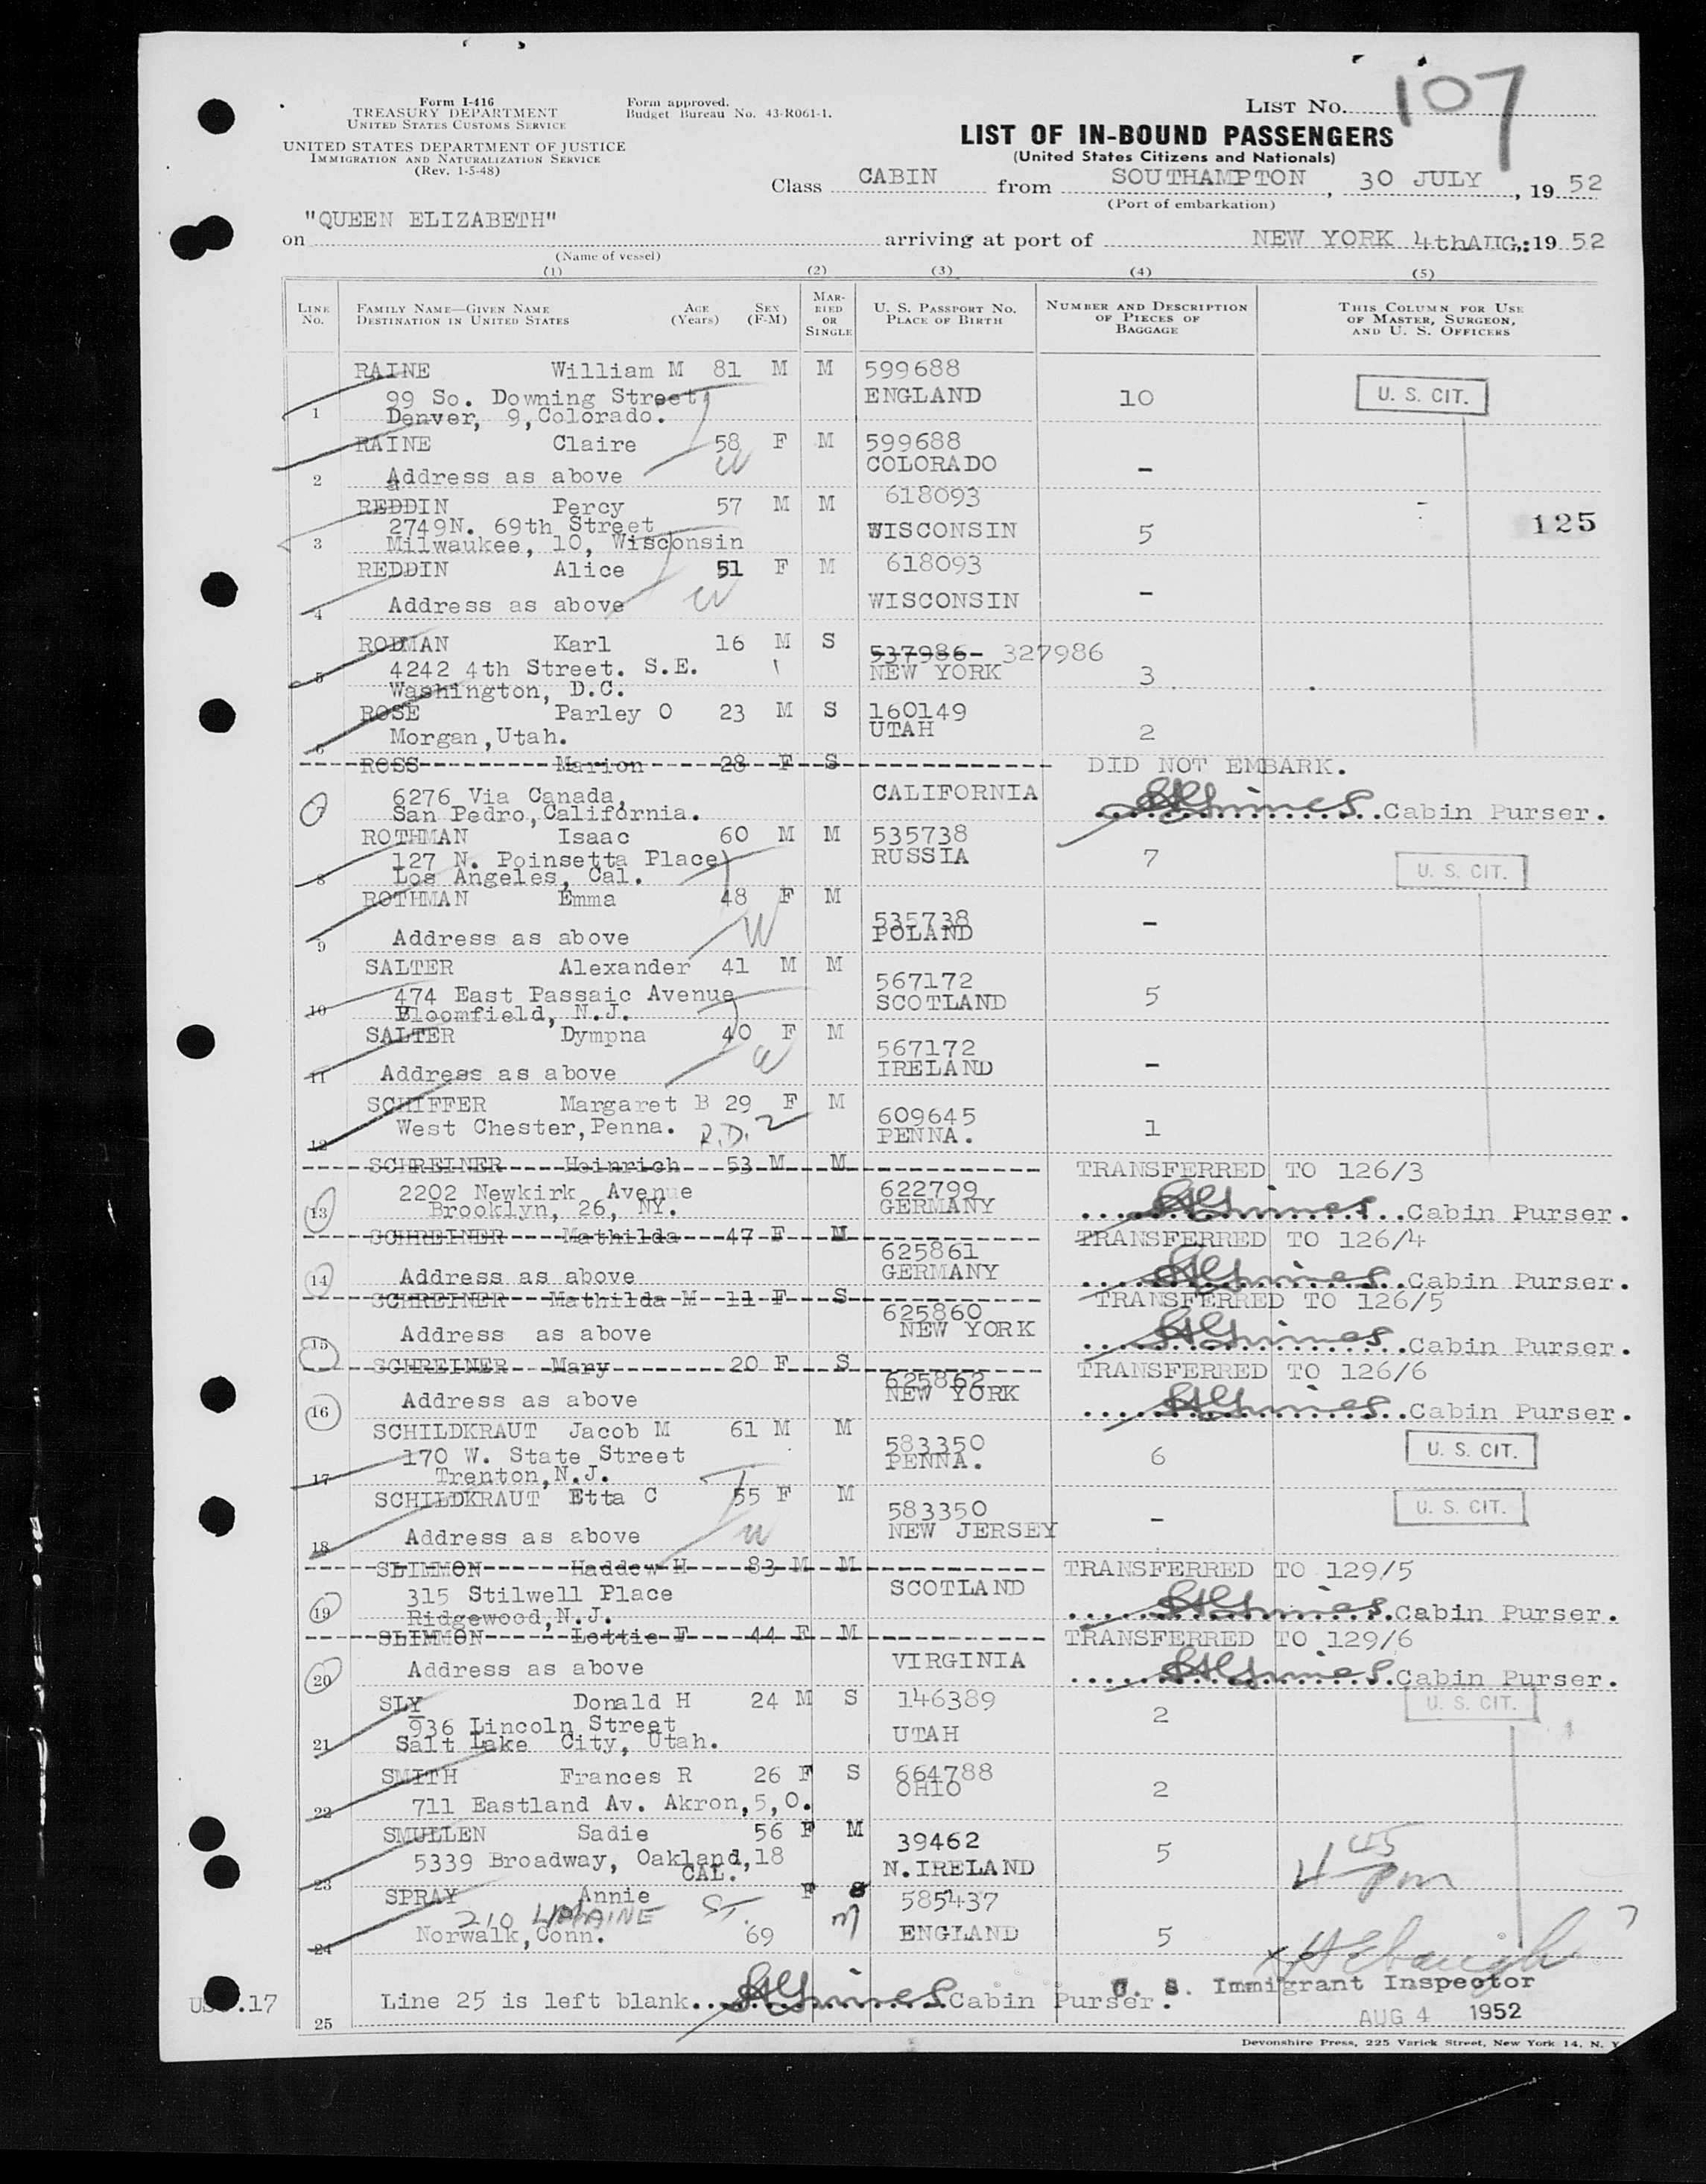 Form I-416
TREASURY DEPARTMENT
UNITED STATES CUSTOMS SERVICE
UNITED STATES DEPARTMENT OF JUSTICE
IMMIGRATION AND NATURALIZATION SERVICE
(Rev. 1-5-48)
Form approved.
Budget Bureau No. 43-R061-1.
LIST NO. 107
LIST OF IN-BOUND PASSENGERS
(United States Citizens and Nationals)
Class CABIN from SOUTHAMPTON, 30 JULY, 1952
(Port of embarkation)
on "QUEEN ELIZABETH" arriving at port of NEW YORK 4thAUG,:1952
(Name of vessel)
(1) (2) (3) (4) (5)
LINE NO. FAMILY NAME—GIVEN NAME DESTINATION IN UNITED STATES AGE (Years) SEX (F-M) MARRIED OR SINGLE U. S. PASSPORT NO. PLACE OF BIRTH NUMBER AND DESCRIPTION OF PIECES OF BAGGAGE THIS COLUMN FOR USE OF MASTER, SURGEON, AND U. S. OFFICERS
RAINE William M 81 M M 599688
99 So. Downing Street ENGLAND 10 U. S. CIT.
1 Denver, 9, Colorado.
RAINE Claire 58 F M 599688
COLORADO
2 Address as above W -
REDDIN Percy 57 M M 618093
2749N. 69th Street WISCONSIN 5 125
3 Milwaukee, 10, Wisconsin
REDDIN Alice 51 F M 618093
4 Address as above W WISCONSIN -
RODMAN Karl 16 M S 537986- 327986
5 4242 4th Street. S.E. NEW YORK 3
Washington, D.C.
ROSE Parley O 23 M S 160149
6 Morgan, Utah. UTAH 2
ROSS Marion 28 F S DID NOT EMBARK.
6276 Via Canada, CALIFORNIA
7 San Pedro, California. Cabin Purser.
ROTHMAN Isaac 60 M M 535738
127 N. Poinsetta Place RUSSIA 7 U. S. CIT.
8 Los Angeles, Cal.
ROTHMAN Emma 48 F M
535738
9 Address as above W POLAND -
SALTER Alexander 41 M M
567172
10 474 East Passaic Avenue SCOTLAND 5
Bloomfield, N.J.
SALTER Dympna 40 F M
567172
11 Address as above W IRELAND -
SCHIFFER Margaret B 29 F M
609645
12 West Chester, Penna. R.D. 2 PENNA. 1
SCHREINER Heinrich 53 M M TRANSFERRED TO 126/3
2202 Newkirk Avenue 622799
13 Brooklyn, 26, NY. GERMANY Cabin Purser.
SCHREINER Mathilda 47 F M TRANSFERRED TO 126/4
625861
14 Address as above GERMANY Cabin Purser.
SCHREINER Mathilda M 11 F S TRANSFERRED TO 126/5
625860
15 Address as above NEW YORK Cabin Purser.
SCHREINER Mary 20 F S TRANSFERRED TO 126/6
625862
16 Address as above NEW YORK Cabin Purser.
SCHILDKRAUT Jacob M 61 M M
583350
170 W. State Street PENNA. 6 U. S. CIT.
17 Trenton, N.J.
SCHILDKRAUT Etta C 55 F M 583350 U. S. CIT.
18 Address as above W NEW JERSEY -
SLIMMON Haddow H 83 M M TRANSFERRED TO 129/5
315 Stilwell Place SCOTLAND
19 Ridgewood, N.J. Cabin Purser.
SLIMMON Lottie F 44 F M TRANSFERRED TO 129/6
20 Address as above VIRGINIA Cabin Purser.
SLY Donald H 24 M S 146389 2 U. S. CIT.
936 Lincoln Street UTAH
21 Salt Lake City, Utah.
SMITH Frances R 26 F S 664788
OHIO 2
22 711 Eastland Av. Akron, 5, O.
SMULLEN Sadie 56 F M 39462
5339 Broadway, Oakland, 18 N. IRELAND 5 4 45 pm
23 CAL.
SPRAY Annie F S 585437
210 ST. M
24 Norwalk, Conn. 69 ENGLAND 5
U. S. Immigrant Inspector
Line 25 is left blank. Cabin Purser.
25 AUG 4 1952
Devonshire Press, 225 Varick Street, New York 14, N. Y